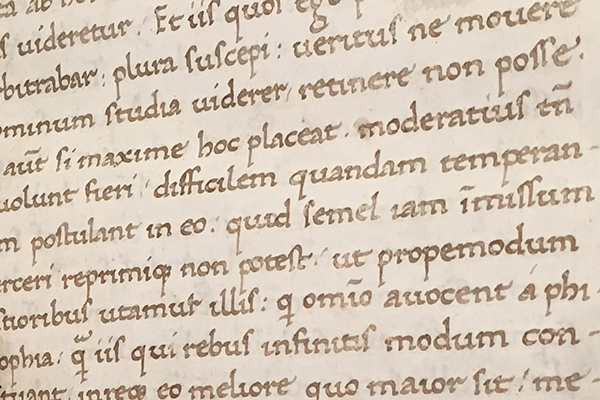 ta ab ho
s videretur. Et iis quos ego p
rbitrabar: plura suscepi: veritus ne movere
ominum studia viderer, retinere non posse.
aut̄ si maxime hoc placeat. moderatius tn̄
volunt fieri: difficilem quandam temperan-
m postulant in eo. quid semel iam īmissum
erceri reprimiqꝫ non potest: ut propemodum
stioribus utamur illis: q̇ om̄io avocent á phi-
ophia: q̃ iis qui rebus infinitis modum con-
ituant, inreqꝫ eo meliore quo maior sit: me-